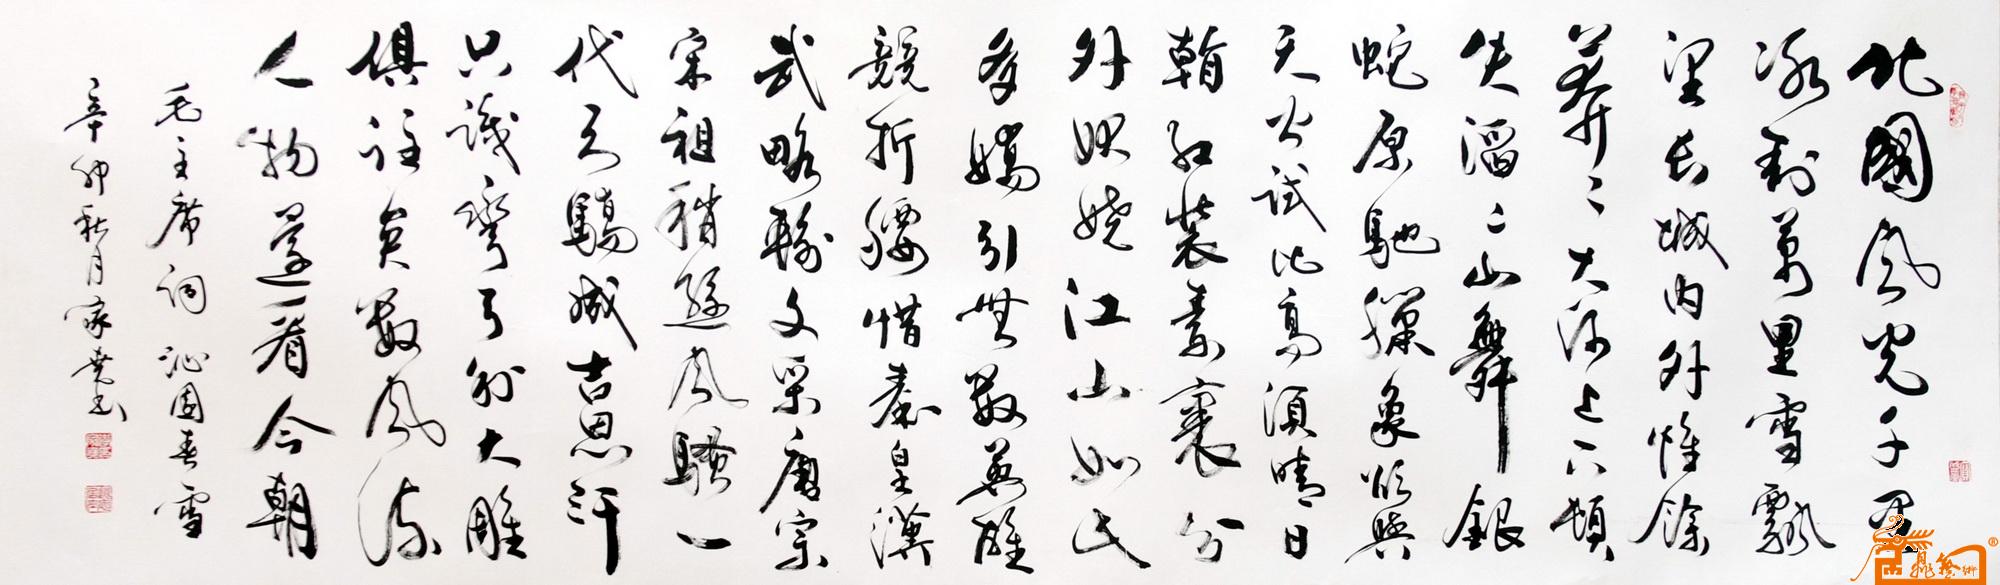 北國風光千里
冰封萬里雪飄
望長城內外惟餘
莽〻大河上下頓
失滔〻山舞銀
蛇原馳臘象欲與
天公試比高須晴日
看紅裝素裹分
外妖嬈江山如此
多嬌引無數英雄
競折腰惜秦皇漢
武略輸文采唐宗
宋祖稍遜風騷一
代天驕成吉思汗
只識彎弓射大雕
俱往矣數風流
人物還看今朝
毛主席詞沁園春雪
辛卯秋月家書